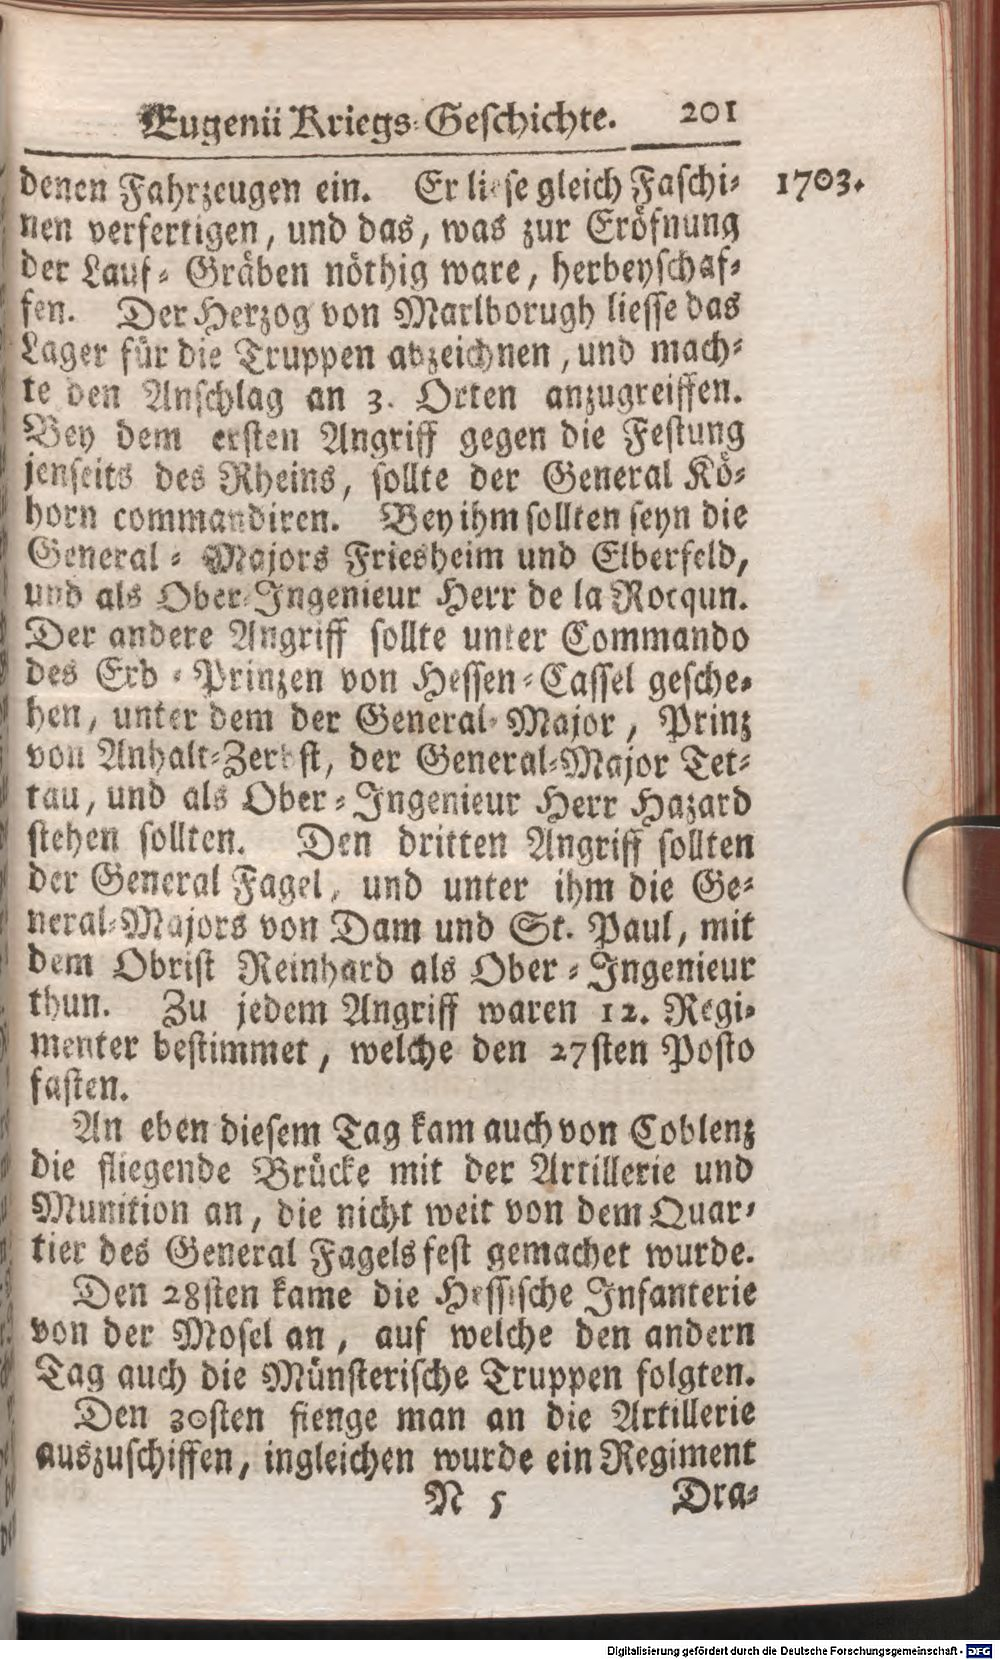 Eugenii Kriegs-Geschichte. 201
denen Fahrzeugen ein. Er liese gleich Faschi- 1703.
nen verfertigen, und das, was zur Eröfnung
der Lauf-Gräben nöthig ware, herbeyschaf-
fen. Der Herzog von Marlborugh liesse das
Lager für die Truppen abzeichnen, und mach-
te den Anschlag an 3. Orten anzugreiffen.
Bey dem ersten Angriff gegen die Festung
jenseits des Rheins, sollte der General Kö-
horn commandiren. Bey ihm sollten seyn die
General-Majors Friesheim und Elberfeld,
und als Ober-Ingenieur Herr de la Rocqun.
Der andere Angriff sollte unter Commando
des Erb-Prinzen von Hessen-Cassel gesche-
hen, unter dem der General-Major, Prinz
von Anhalt-Zerbst, der General-Major Tet-
tau, und als Ober-Ingenieur Herr Hazard
stehen sollten. Den dritten Angriff sollten
der General Fagel, und unter ihm die Ge-
neral-Majors von Dam und St. Paul, mit
dem Obrist Reinhard als Ober-Ingenieur
thun. Zu jedem Angriff waren 12. Regi-
menter bestimmet, welche den 27sten Posto
fasten.
An eben diesem Tag kam auch von Coblenz
die fliegende Brücke mit der Artillerie und
Munition an, die nicht weit von dem Quar-
tier des General Fagels fest gemachet wurde.
Den 28sten kame die Hessische Infanterie
von der Mosel an, auf welche den andern
Tag auch die Münsterische Truppen folgten.
Den 30sten fienge man an die Artillerie
auszuschiffen, ingleichen wurde ein Regiment
N 5 Dra-
Digitalisierung gefördert durch die Deutsche Forschungsgemeinschaft - DFG